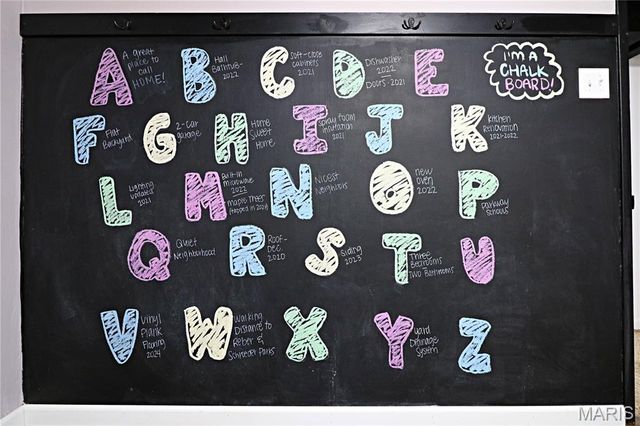 A A great place to call HOME!
B Hall Bathtub- 2022
C Soft-close cabinets 2021
D Dishwasher 2022 Doors-2021
E
I'M A CHALK BOARD!
F Flat Backyard
G 2-car garage
H Home Sweet Home
I Spray foam insulation 2021
J
K Kitchen Renovation 2021-2022
L Lighting updated 2021
M Built-in microwave 2022 Maple Trees
N Nicest Neighbors
O new oven 2022
P Parkway Schools
Q Quiet Neighborhood
R Roof- Dec. 2020
S Siding 2023
T Three Bedrooms Two Bathrooms
U
V Vinyl Plank Flooring 2024
W Walking Distance to Reber & Schroeder Parks
X
Y Yard Drainage System
Z
MARIS